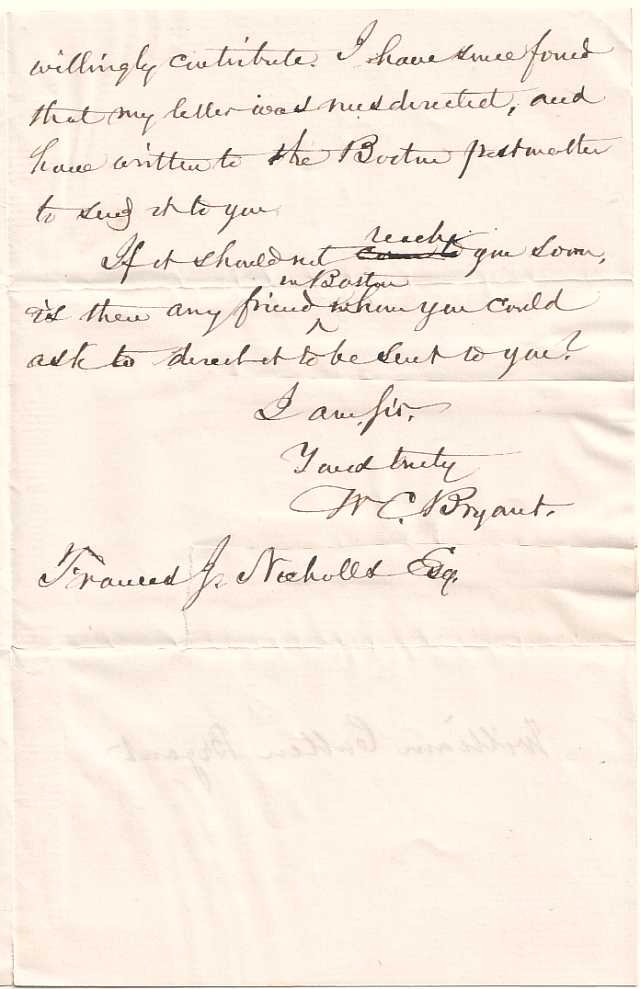 willingly contribute. I have since found
that my letter was misdirected, and
have written to the Boston postmaster
to send it to you
If it should not reach you soon,
is there any friend in Boston whom you could
ask to direct it to be sent to you?
I am, sir,
Yours truly
W. C. Bryant.
Francis J. Nicholls Esq.
William Cullen Bryant